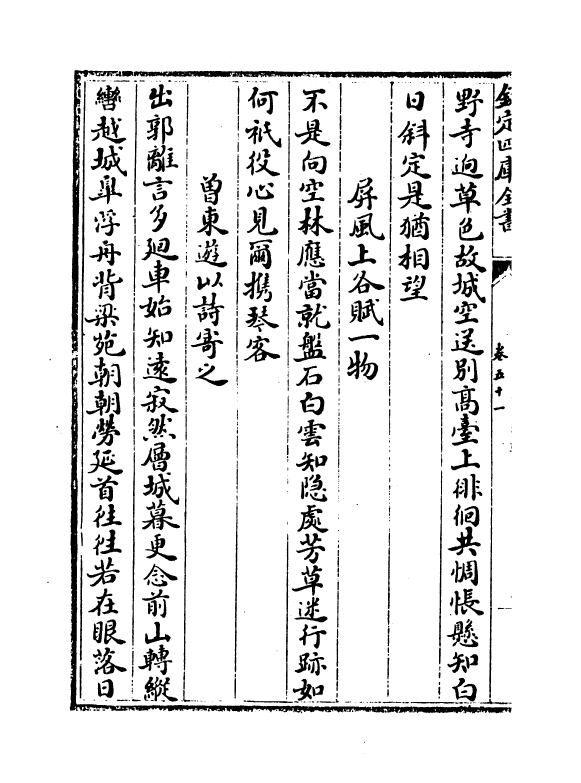 欽定四庫全書
卷五十一
野寺迥草色故城空送别髙臺上徘徊共惆悵懸知白
日斜定是猶相望
屏風上各賦一物
不是向空林應當就盤石白雲知隐處芳草迷行跡如
何祇役心見爾携琴客
曽東遊以詩寄之
出郭離言多廻車始知遠寂然層城暮更念前山轉縱
轡越城臯浮舟背梁苑朝朝勞延首往往若在眼落日